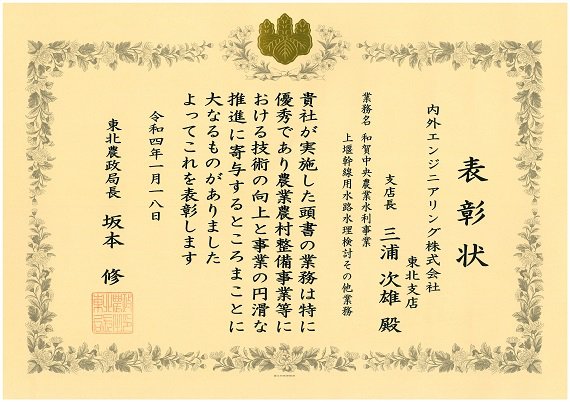 表彰状
内外エンジニアリング株式会社
東北支店
支店長 三浦 次雄 殿
業務名 和賀中央農業水利事業
上堰幹線用水路水理検討その他業務
貴社が実施した頭書の業務は特に
優秀であり農業農村整備事業等に
おける技術の向上と事業の円滑な
推進に寄与するところまことに
大なるものがありました
よってこれを表彰します
令和四年一月一八日
東北農政局長 坂本 修